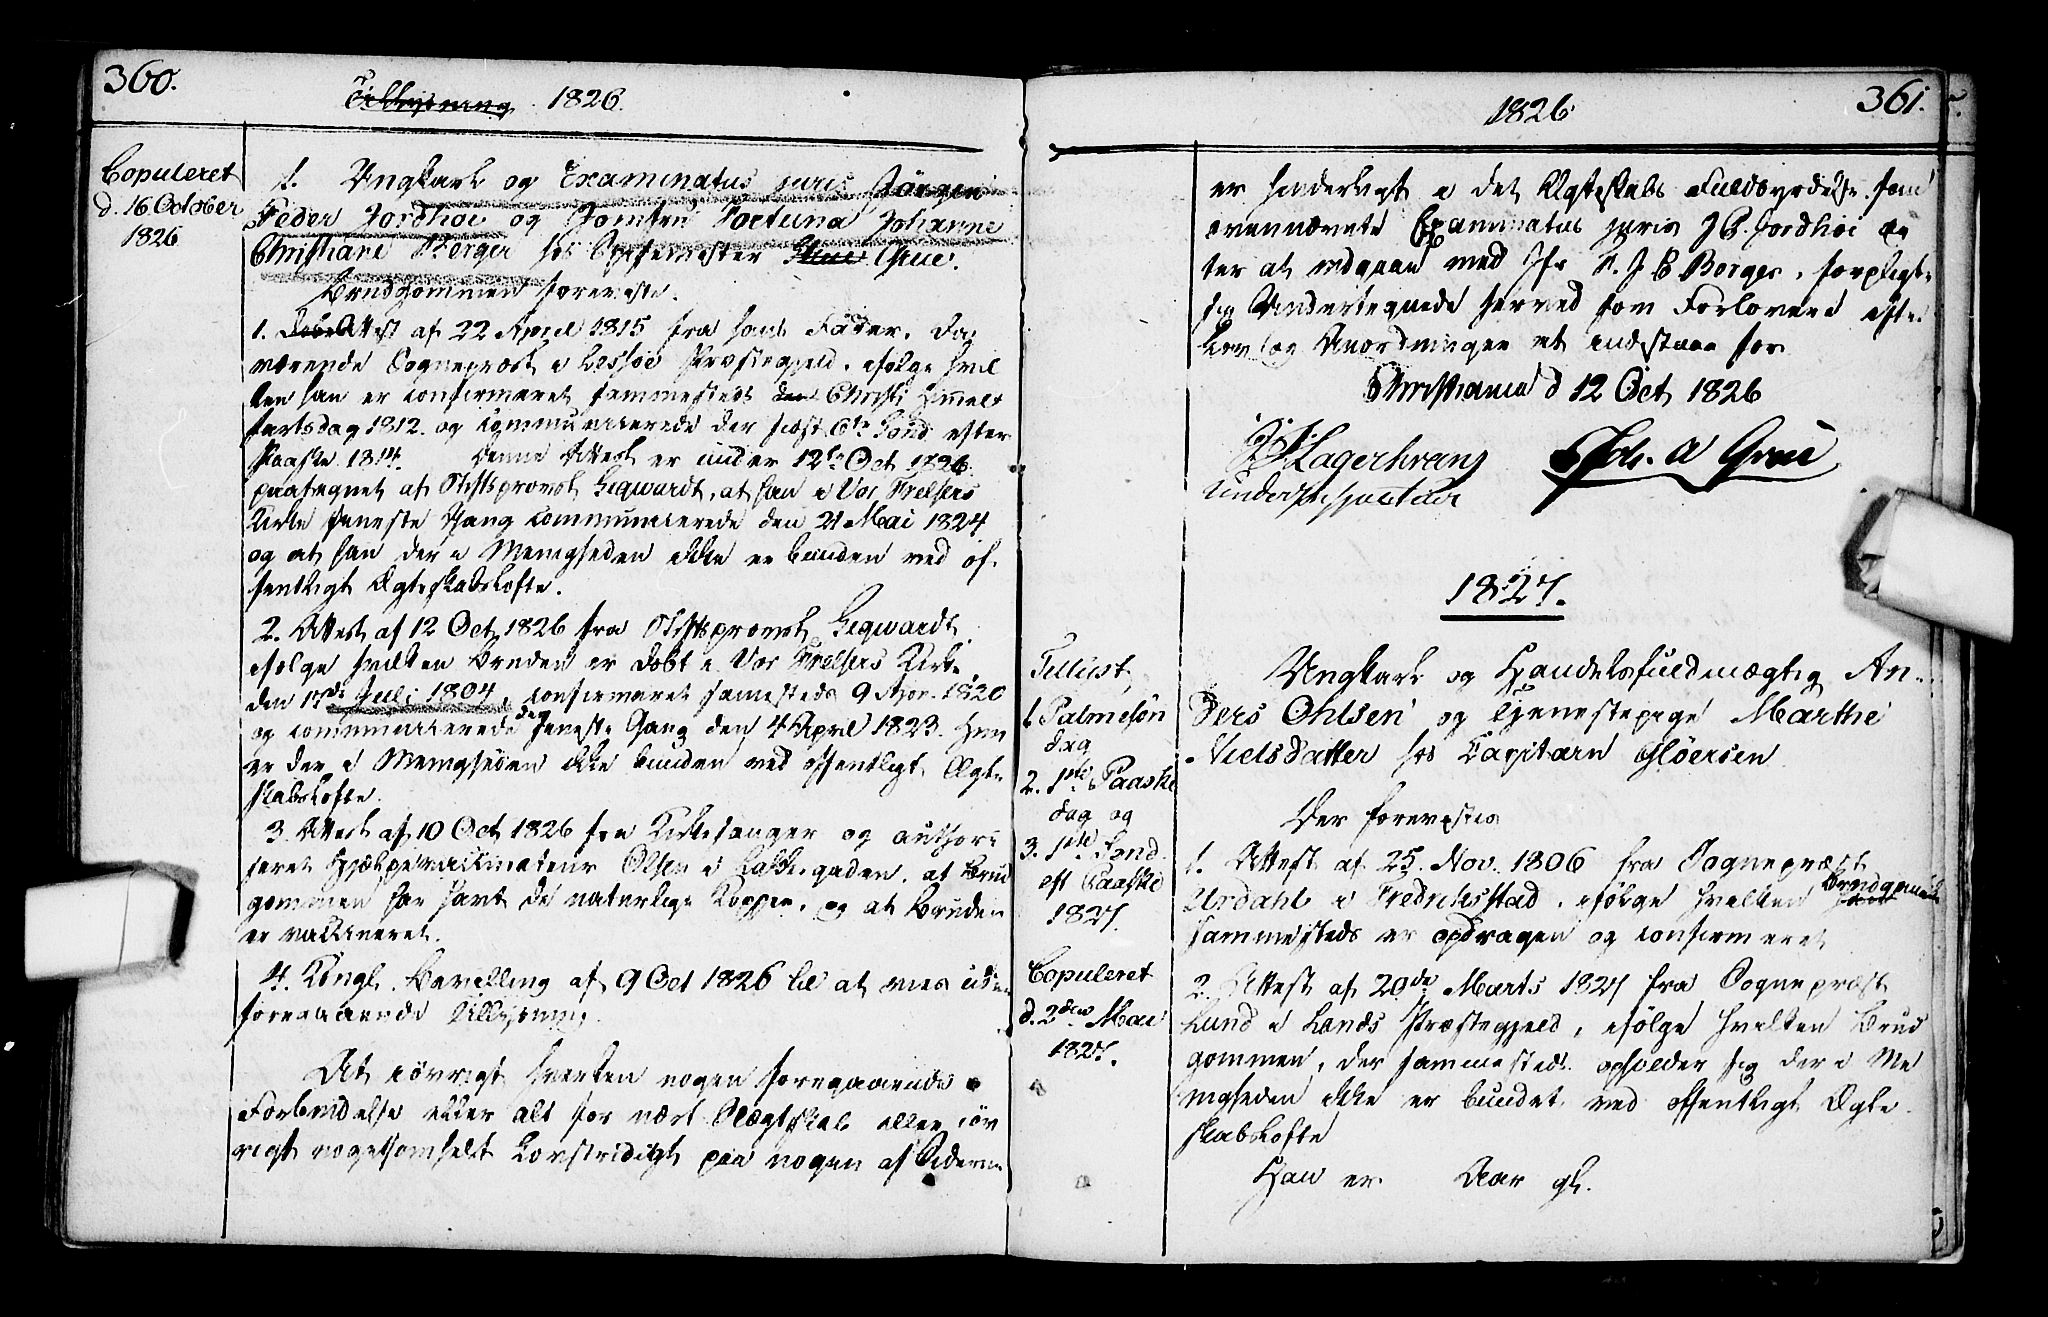 360.
Tillysning 1826.
Copuleret
d. 16 October
1826
1. Ungkarl og Examinatus juris Jørgen
Peder Jordhøi og Jomfru Fortuna Johanne
Christiane Berger hos Byfemester Grue.
Brudgommen foreviste.
1. Attest af 22 April 1815 fra hans Fader, da
værende Sognepræst i Lessøe Præstegjeld, ifølge hvil
ken han er confirmeret sammesteds Christi Himmel
fartsdag 1812. og communicerede der sidst 6te Sønd efter
Paaske 1814. Denne Attest er under 12te Oct 1826
paategnet af Stiftsprovst Siqwardt, at han i Vor Frelsers
Kirke seneste Gang communicerede den 21 Mai 1824
og at han der i Menigheden ikke er bunden ved of
fentligt Ægteskabsløfte.
2. Attest af 12 Oct 1826 fra Stiftsprovst Siqwardt
ifølge hvilken Bruden er døbt i Vor Frelsers Kirke,
den 17de Juli 1804, confirmeret samesteds 9 Apr. 1820
og communicerede der seneste Gang den 4 April 1823. Hun
er der i Menigheden ikke bunden ved offentligt Ægte
skabsløfte.
3. Attest af 10 Oct 1826 fra Kirkesanger og authori
seret Hjælpevaccinateur Olsen i Lakkegaden, at Brud
gommen har havt de naturlige Kopper, og at Bruden
er vaccineret.
4. Kongl. Bevilling af 9 Oct 1826 til at vies uden
foregaaende Tillysning.
At iøvrigt hverken nogen foregaaende
Forbindelse eller alt for nært Slægtskab eller iøv
rigt nogetsomhelst Lovstridigt paa nogen af Siderne
1826
361.
er hinderligt i det Ægteskabs Fuldbyrdelse som
ovennævnte Examinatus juris J P. Jordhøi ag
ter at indgaae med Jfr F. J C Berger, forpligte
sig Undertegnede herved som Forlovere efter
Lov og Anordninger at indestaae for
Christiania d 12 Oct 1826
Lagerkrans
Joh. A Grue
1827.
Tillyst,
1. Palmesøn
dag
2. 1ste Paaske
dag og
3. 1ste Sønd.
eft Paaske
1827.
Copuleret
d. 2den Mai
1827.
Ungkarl og Handelsfuldmægtig An
ders Ohlsen og Tjenestepige Marthe
Nielsdatter hos Capitain Gløersen
Der forevistes
1. Attest af 25. Nov. 1806 fra Sognepræst
Urdahl i Fredriksstad, ifølge hvilken Brudgommen
sammesteds er opdragen og confirmeret
2. Attest af 20de Marts 1827 fra Sognepræst
Lund i Lands Præstegjeld, ifølge hvilken Brud
gommen, der sammesteds opholder sig der i Me
nigheden ikke er bundet ved offentligt Ægte
skabsløfte
Han er Aar gl.